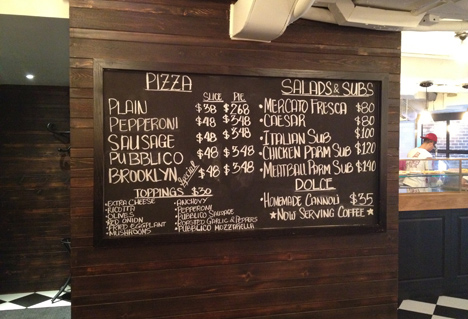 PIZZA
SLICE PIE
PLAIN $38 $268
PEPPERONI $48 $348
SAUSAGE $48 $348
PUBBLICO $48 $348
BROOKLYN Special $48 $348
TOPPINGS $30
•EXTRA CHEESE
•RICOTTA
•OLIVES
•RED ONION
•FRIED EGGPLANT
•MUSHROOMS
•ANCHOVY
•PEPPERONI
•PUBBLICO SAUSAGE
•ROASTED GARLIC & PEPPERS
•PUBBLICO MOZZARELLA
SALADS & SUBS
•MERCATO FRESCA $80
•CAESAR $80
•ITALIAN SUB $100
•CHICKEN PARM SUB $120
•MEATBALL PARM SUB $140
DOLCE
•HOMEMADE CANNOLI $35
★NOW SERVING COFFEE★